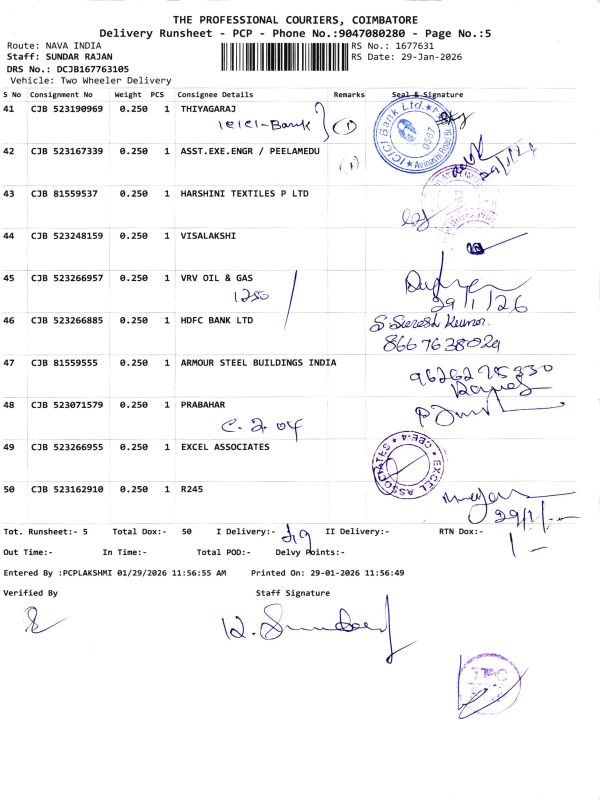 THE PROFESSIONAL COURIERS, COIMBATORE
Delivery Runsheet - PCP - Phone No.:9047080280 - Page No.:5
Route: NAVA INDIA RS No.: 1677631
Staff: SUNDAR RAJAN RS Date: 29-Jan-2026
DRS No.: DCJB167763105
Vehicle: Two Wheeler Delivery
S No Consignment No Weight PCS Consignee Details Remarks Seal & Signature
41 CJB 523190969 0.250 1 THIYAGARAJ
ICICI-Bank (1)
ICICI Bank Ltd.
42 CJB 523167339 0.250 1 ASST.EXE.ENGR / PEELAMEDU
(1)
43 CJB 81559537 0.250 1 HARSHINI TEXTILES P LTD
44 CJB 523248159 0.250 1 VISALAKSHI
45 CJB 523266957 0.250 1 VRV OIL & GAS
1250
29/1/26
46 CJB 523266885 0.250 1 HDFC BANK LTD S Suresh Kumar.
8667638029
47 CJB 81559555 0.250 1 ARMOUR STEEL BUILDINGS INDIA
9626275330
48 CJB 523071579 0.250 1 PRABAHAR
C. 2. 04
49 CJB 523266955 0.250 1 EXCEL ASSOCIATES
EXCEL ASSOCIATES CBE-4
50 CJB 523162910 0.250 1 R245
Tot. Runsheet:- 5 Total Dox:- 50 I Delivery:- 49 II Delivery:- RTN Dox:- 1
Out Time:- In Time:- Total POD:- Delvy Points:-
Entered By :PCPLAKSHMI 01/29/2026 11:56:55 AM Printed On: 29-01-2026 11:56:49
Verified By Staff Signature